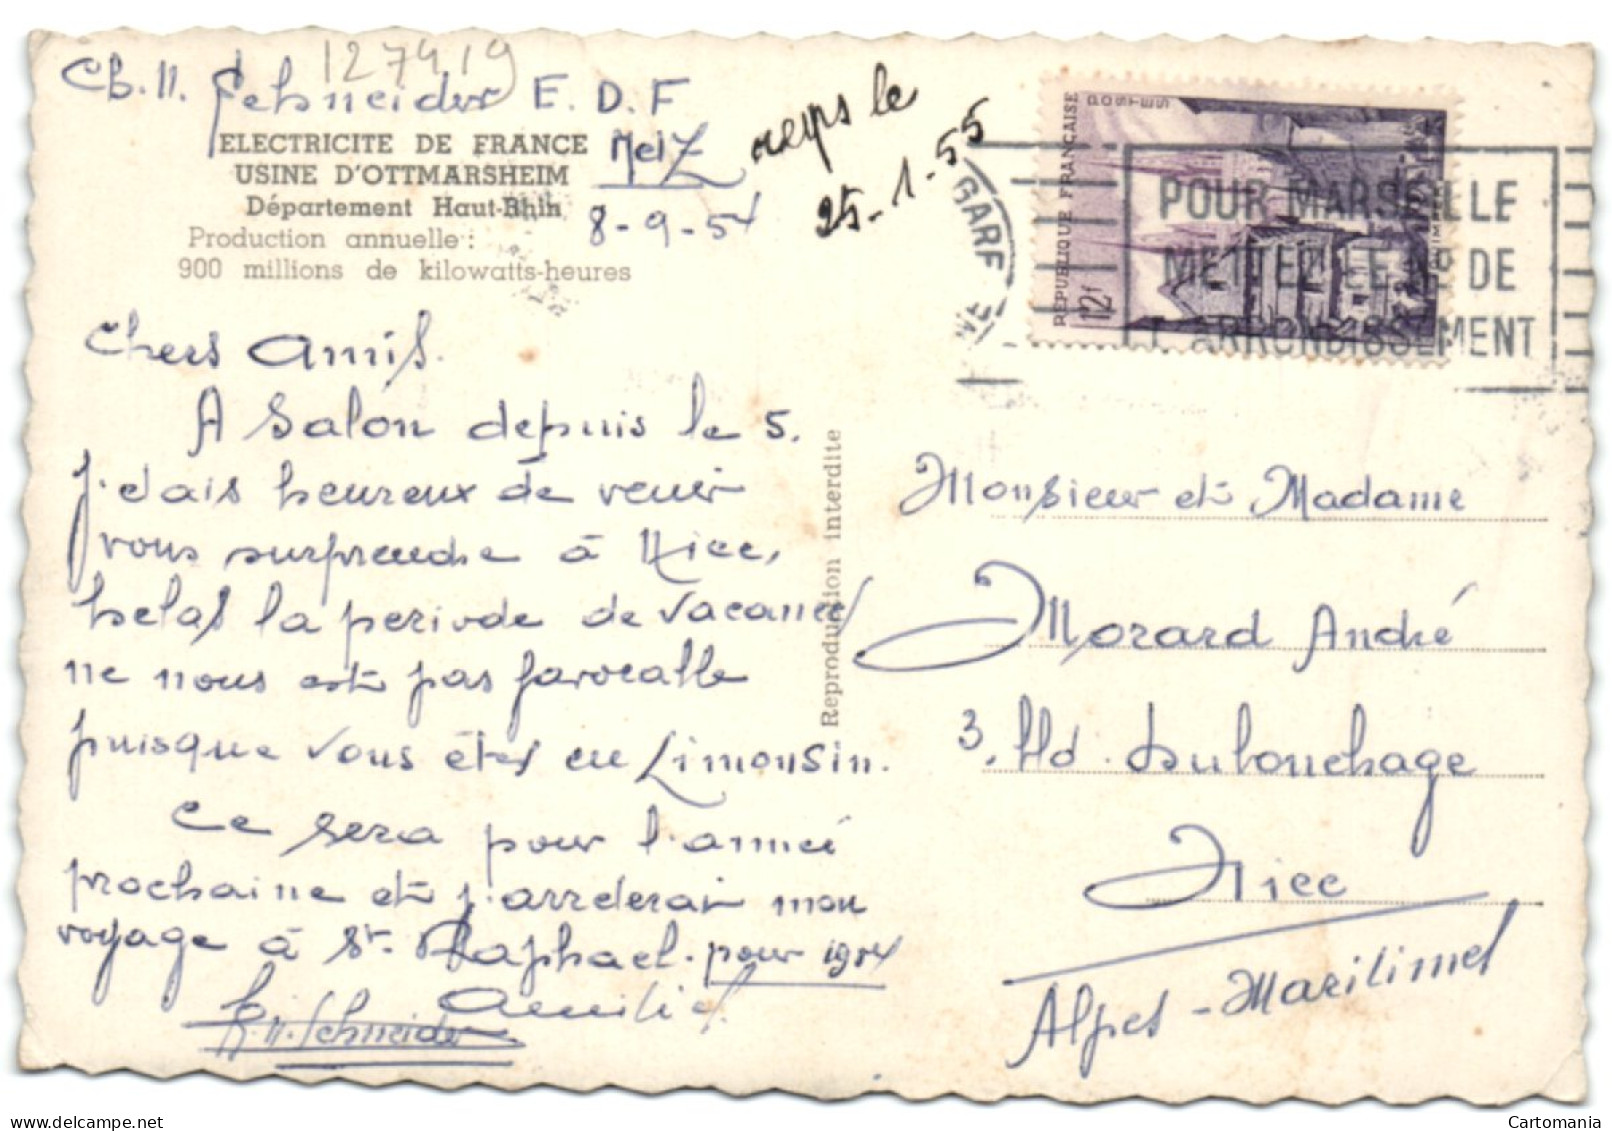 127419
Ch. N. Schneider E.D.F
ELECTRICITE DE FRANCE
USINE D'OTTMARSHEIM
Département Haut-Rhin
Production annuelle :
900 millions de kilowatts-heures
Metz
8-9-54
le
25-1-55
GARE
REPUBLIQUE FRANÇAISE
POSTES
12f
POUR MARSEILLE
METTEZ LE N° DE
L'ARRONDISSEMENT
Chers Amis.
A Salon depuis le 5.
j'etais heureux de venir
vous surprendre à Nice,
helas la periode de vacances
ne nous est pas favorable
puisque vous êtes en Limousin.
Ce sera pour l'année
prochaine et j'arreterai mon
voyage à St. Raphael. pour 1954
Amitiés.
Schneider
Reproduction interdite
Monsieur et Madame
Morard André
3, Bld. Dubouchage
Nice
Alpes-Maritimes
Cartomania